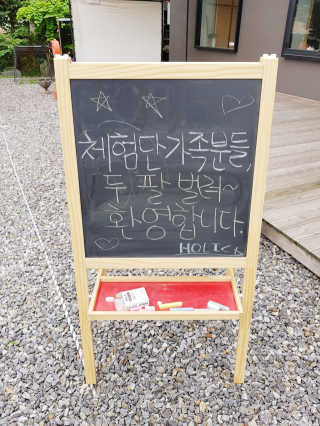 체험단 가족분들,
두 팔 벌려~
환영합니다.